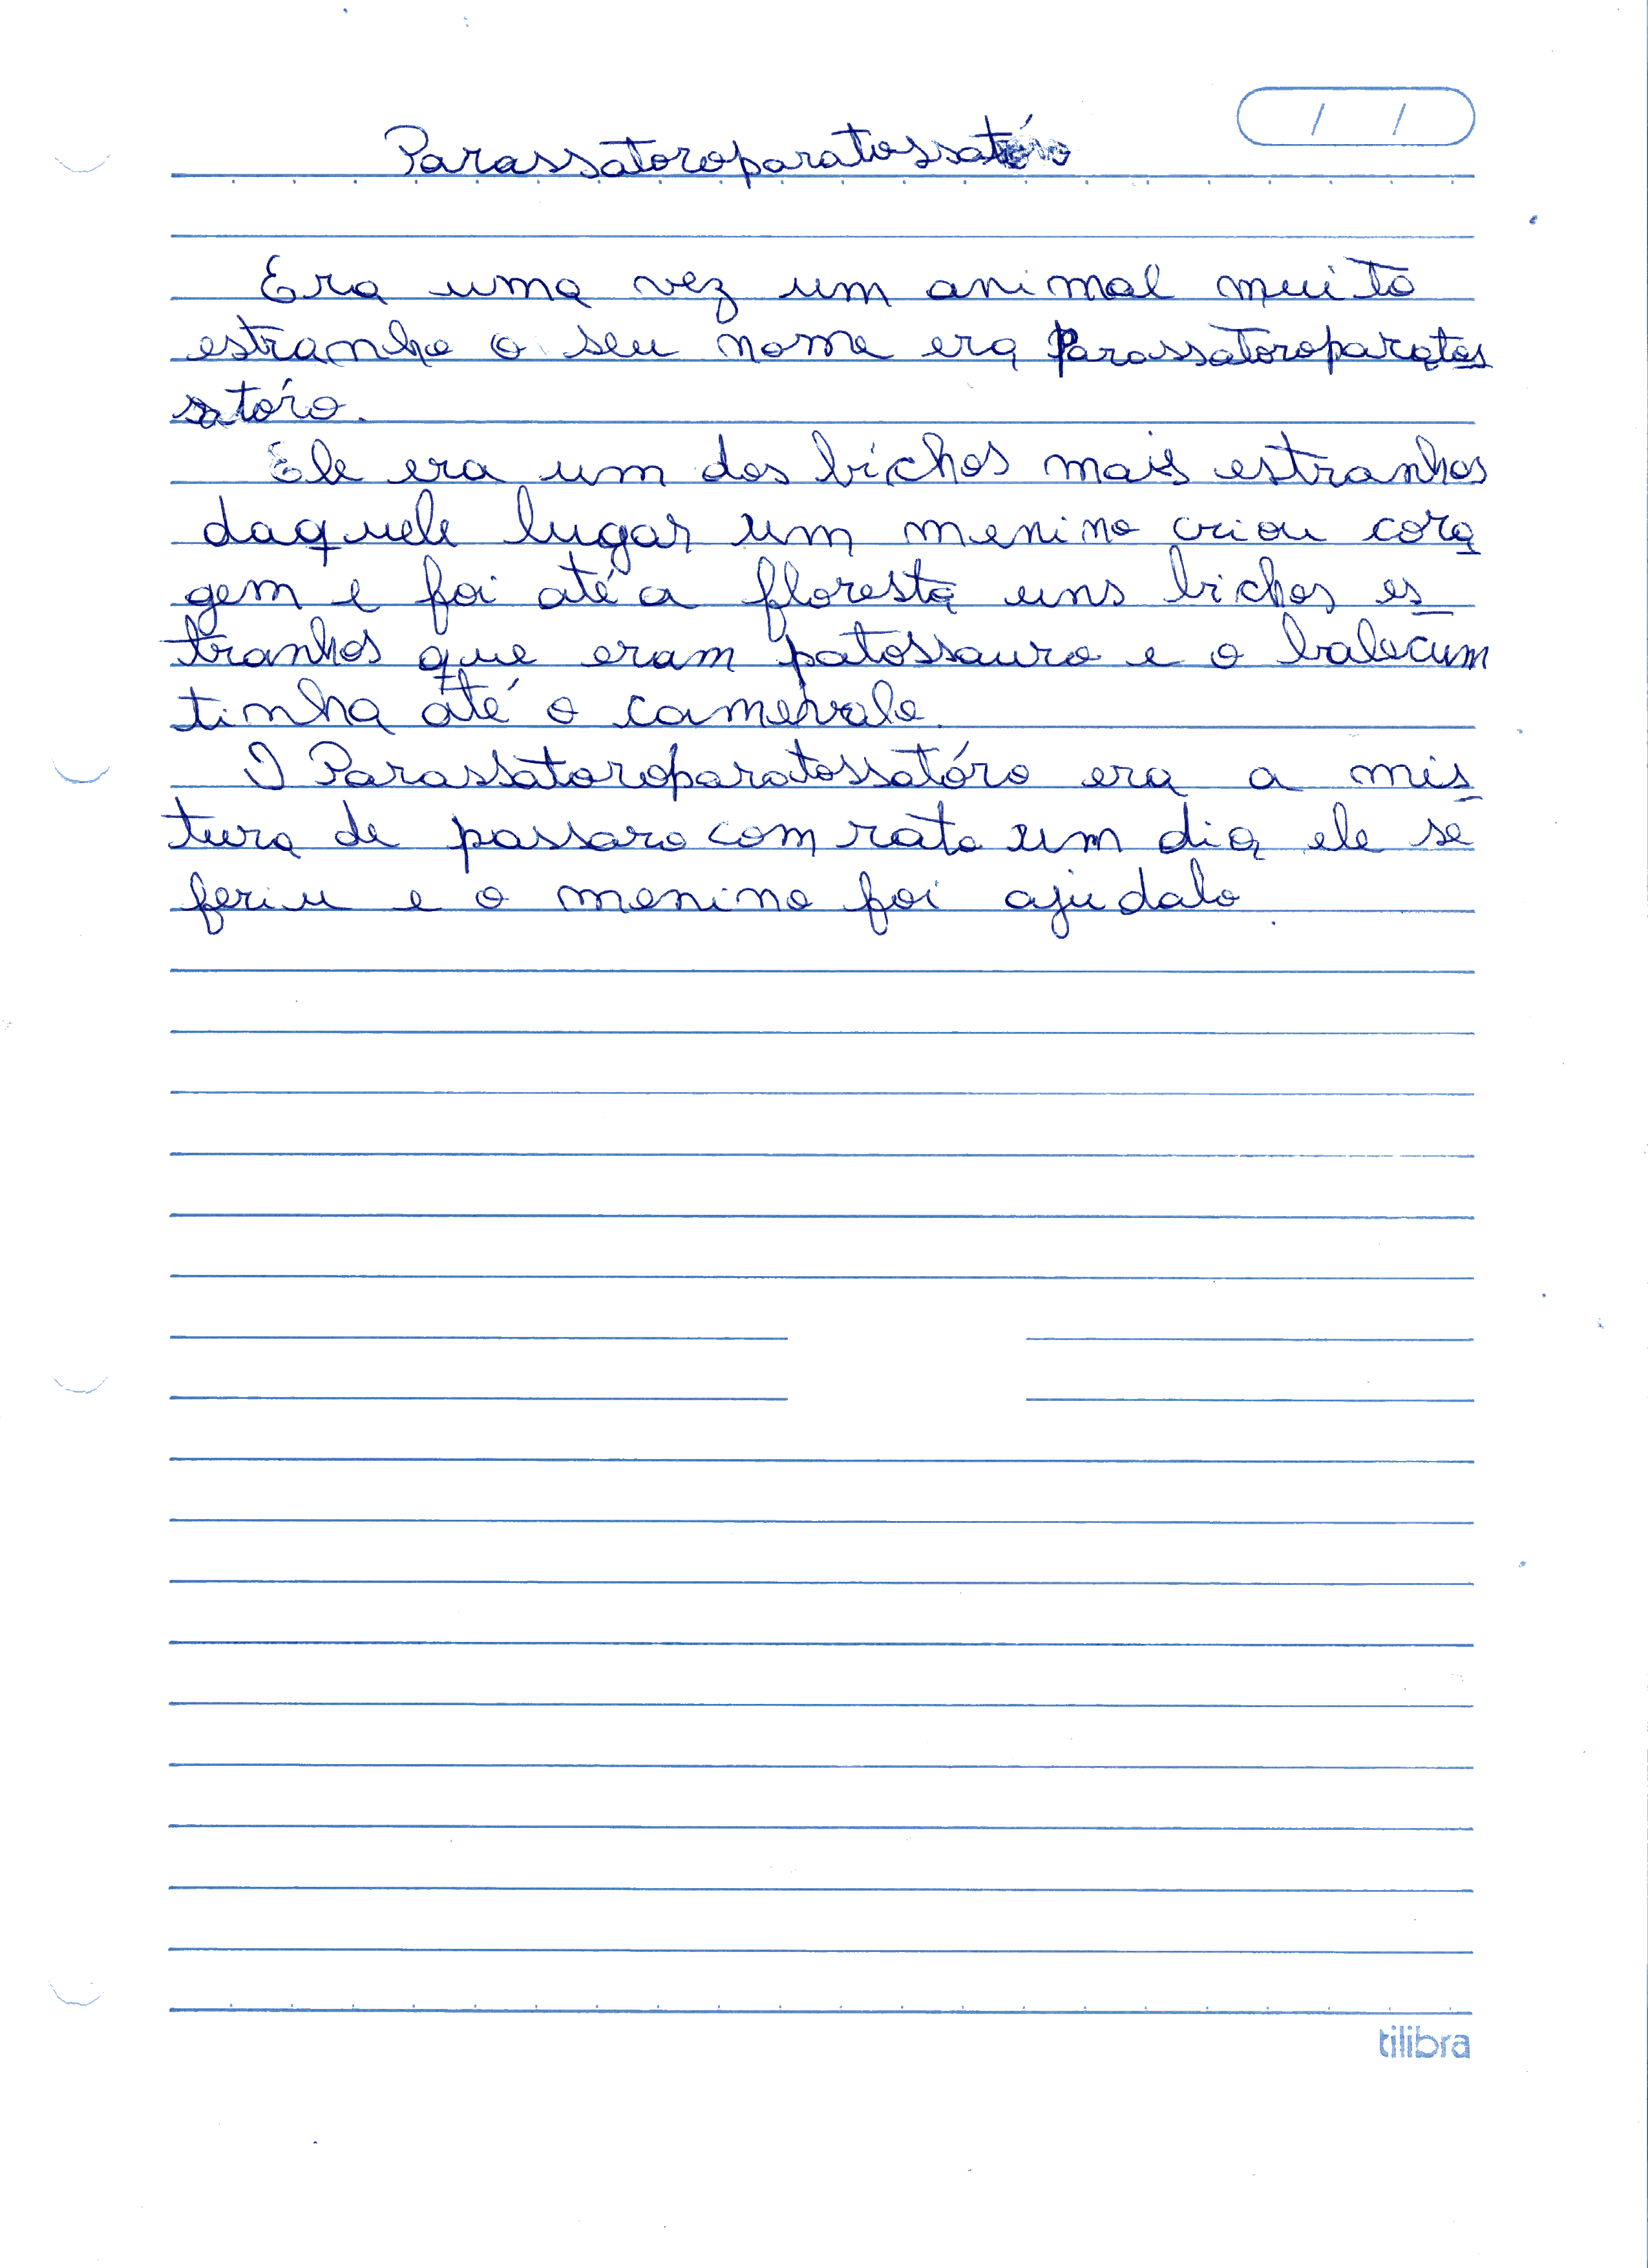 Parassatoroparatossatóro
/ /
Era uma vez um animal muito
estranho o seu nome era Parassatoroparatos
satóro.
Ele era um dos bichos mais estranhos
daquele lugar um menino criou cora
gem e foi até a floresta uns bichos es
tranhos que eram patossauro e o balecum
tinha até o camehrale.
O Parassatoroparatossatóro era a mis
tura de passaro com rato um dia ele se
feriu e o menino foi ajudalo.
tilibra